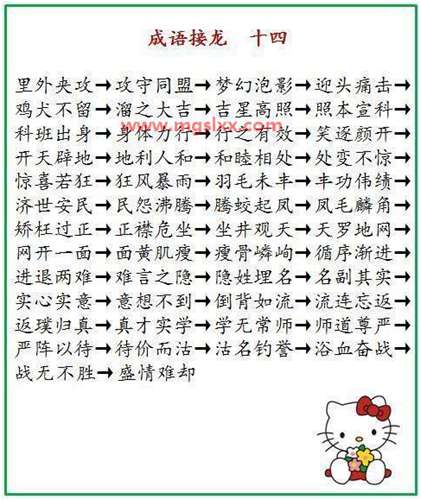 成语接龙 十四
里外夹攻→攻守同盟→梦幻泡影→迎头痛击→
鸡犬不留→溜之大吉→吉星高照→照本宣科→
科班出身→身体力行→行之有效→笑逐颜开→
www.mgslxx.com
开天辟地→地利人和→和睦相处→处变不惊→
惊喜若狂→狂风暴雨→羽毛未丰→丰功伟绩→
济世安民→民怨沸腾→腾蛟起凤→凤毛麟角→
矫枉过正→正襟危坐→坐井观天→天罗地网→
网开一面→面黄肌瘦→瘦骨嶙峋→循序渐进→
进退两难→难言之隐→隐姓埋名→名副其实→
实心实意→意想不到→倒背如流→流连忘返→
返璞归真→真才实学→学无常师→师道尊严→
严阵以待→待价而沽→沽名钓誉→浴血奋战→
战无不胜→盛情难却